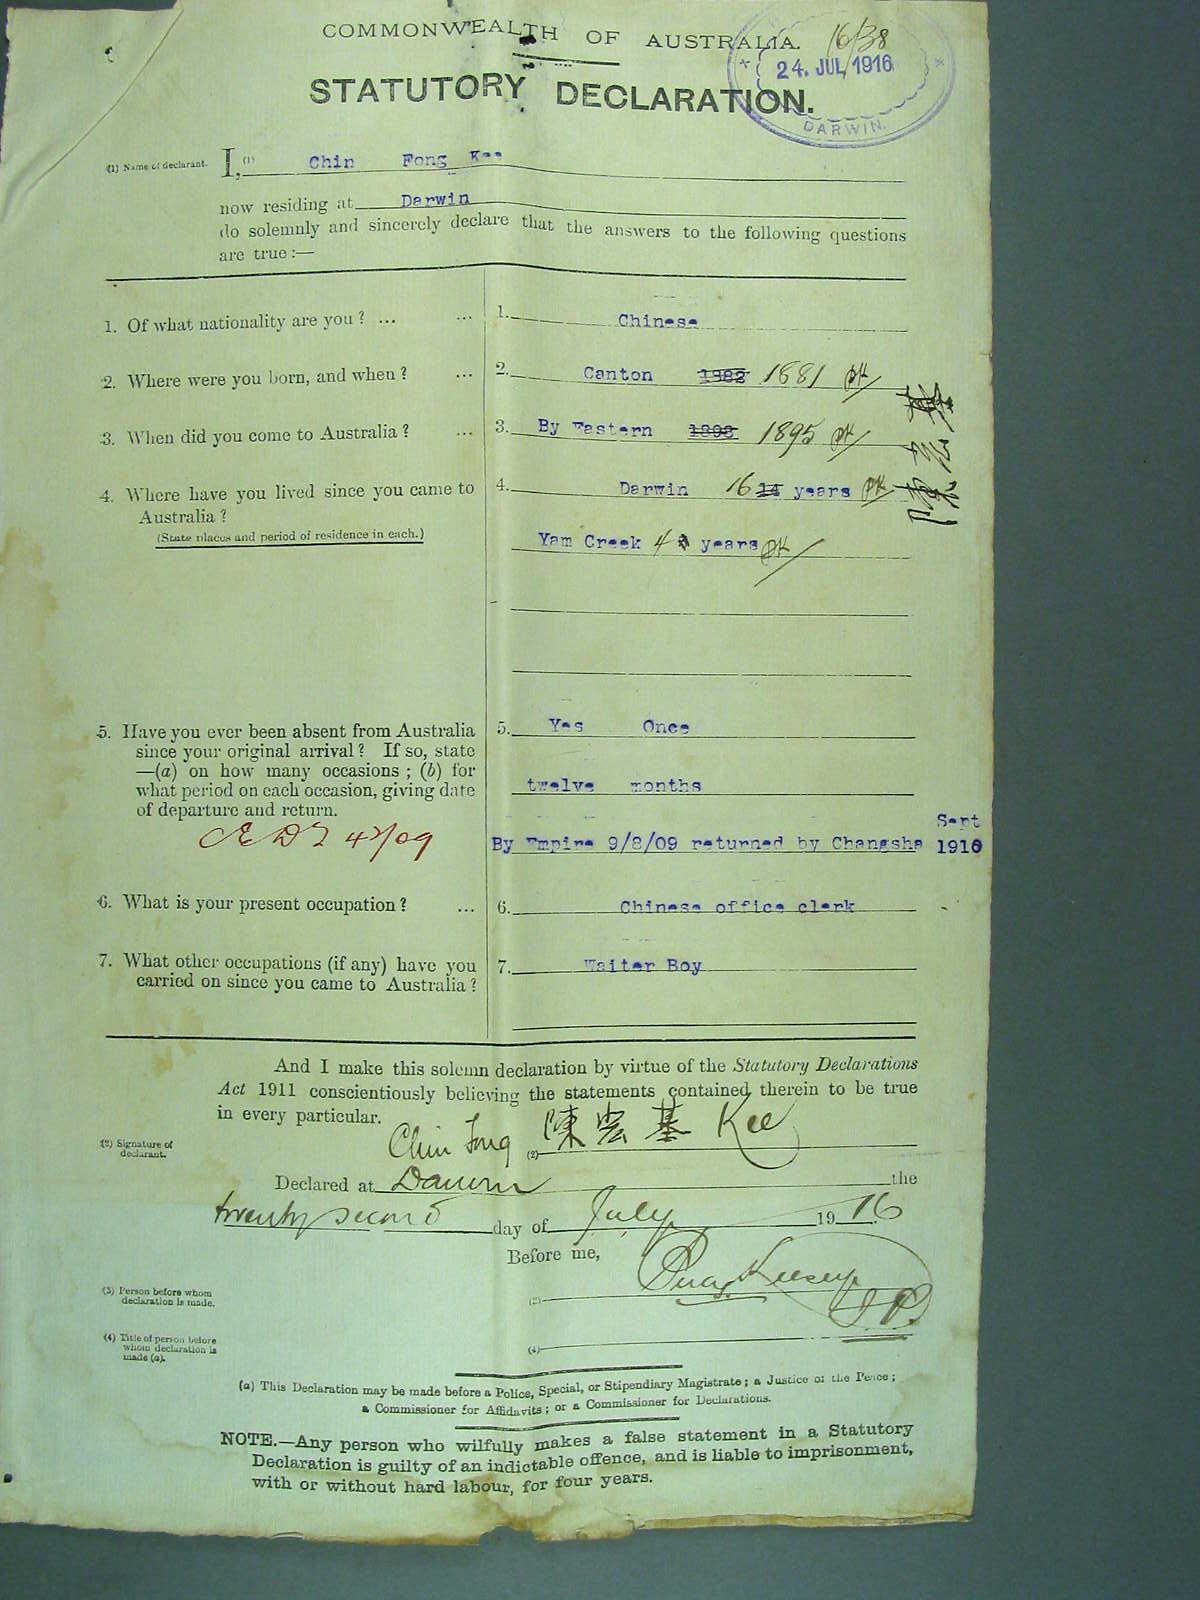 COMMONWEALTH OF AUSTRALIA. 16/38
24. JUL 1916
DARWIN.
STATUTORY DECLARATION.
(1) Name of declarant. I, (1) Chin Fong Kee
now residing at Darwin
do solemnly and sincerely declare that the answers to the following questions
are true:—
1. Of what nationality are you? ... ... 1. Chinese
2. Where were you born, and when? ... 2. Canton 1882 1881
3. When did you come to Australia? ... 3. By Eastern 1898 1895
4. Where have you lived since you came to 4. Darwin 16 14 years
Australia?
(State places and period of residence in each.)
Yam Creek 4 years
5. Have you ever been absent from Australia 5. Yes Once
since your original arrival? If so, state
—(a) on how many occasions; (b) for
what period on each occasion, giving date twelve months
of departure and return.
CEDT 42/09
By Empire 9/8/09 returned by Changsha Sept
1910
6. What is your present occupation? ... 6. Chinese office clerk
7. What other occupations (if any) have you 7. Waiter Boy
carried on since you came to Australia?
And I make this solemn declaration by virtue of the Statutory Declarations
Act 1911 conscientiously believing the statements contained therein to be true
in every particular.
(2) Signature of
declarant.
Chin Fong (2) 陳宏基 Kee
Declared at Darwin the
twenty second day of July 1916
Before me,
(3) Person before whom
declaration is made.
(3)
J.P.
(4) Title of person before
whom declaration is
made (a).
(4)
(a) This Declaration may be made before a Police, Special, or Stipendiary Magistrate; a Justice of the Peace;
a Commissioner for Affidavits; or a Commissioner for Declarations.
NOTE.—Any person who wilfully makes a false statement in a Statutory
Declaration is guilty of an indictable offence, and is liable to imprisonment,
with or without hard labour, for four years.